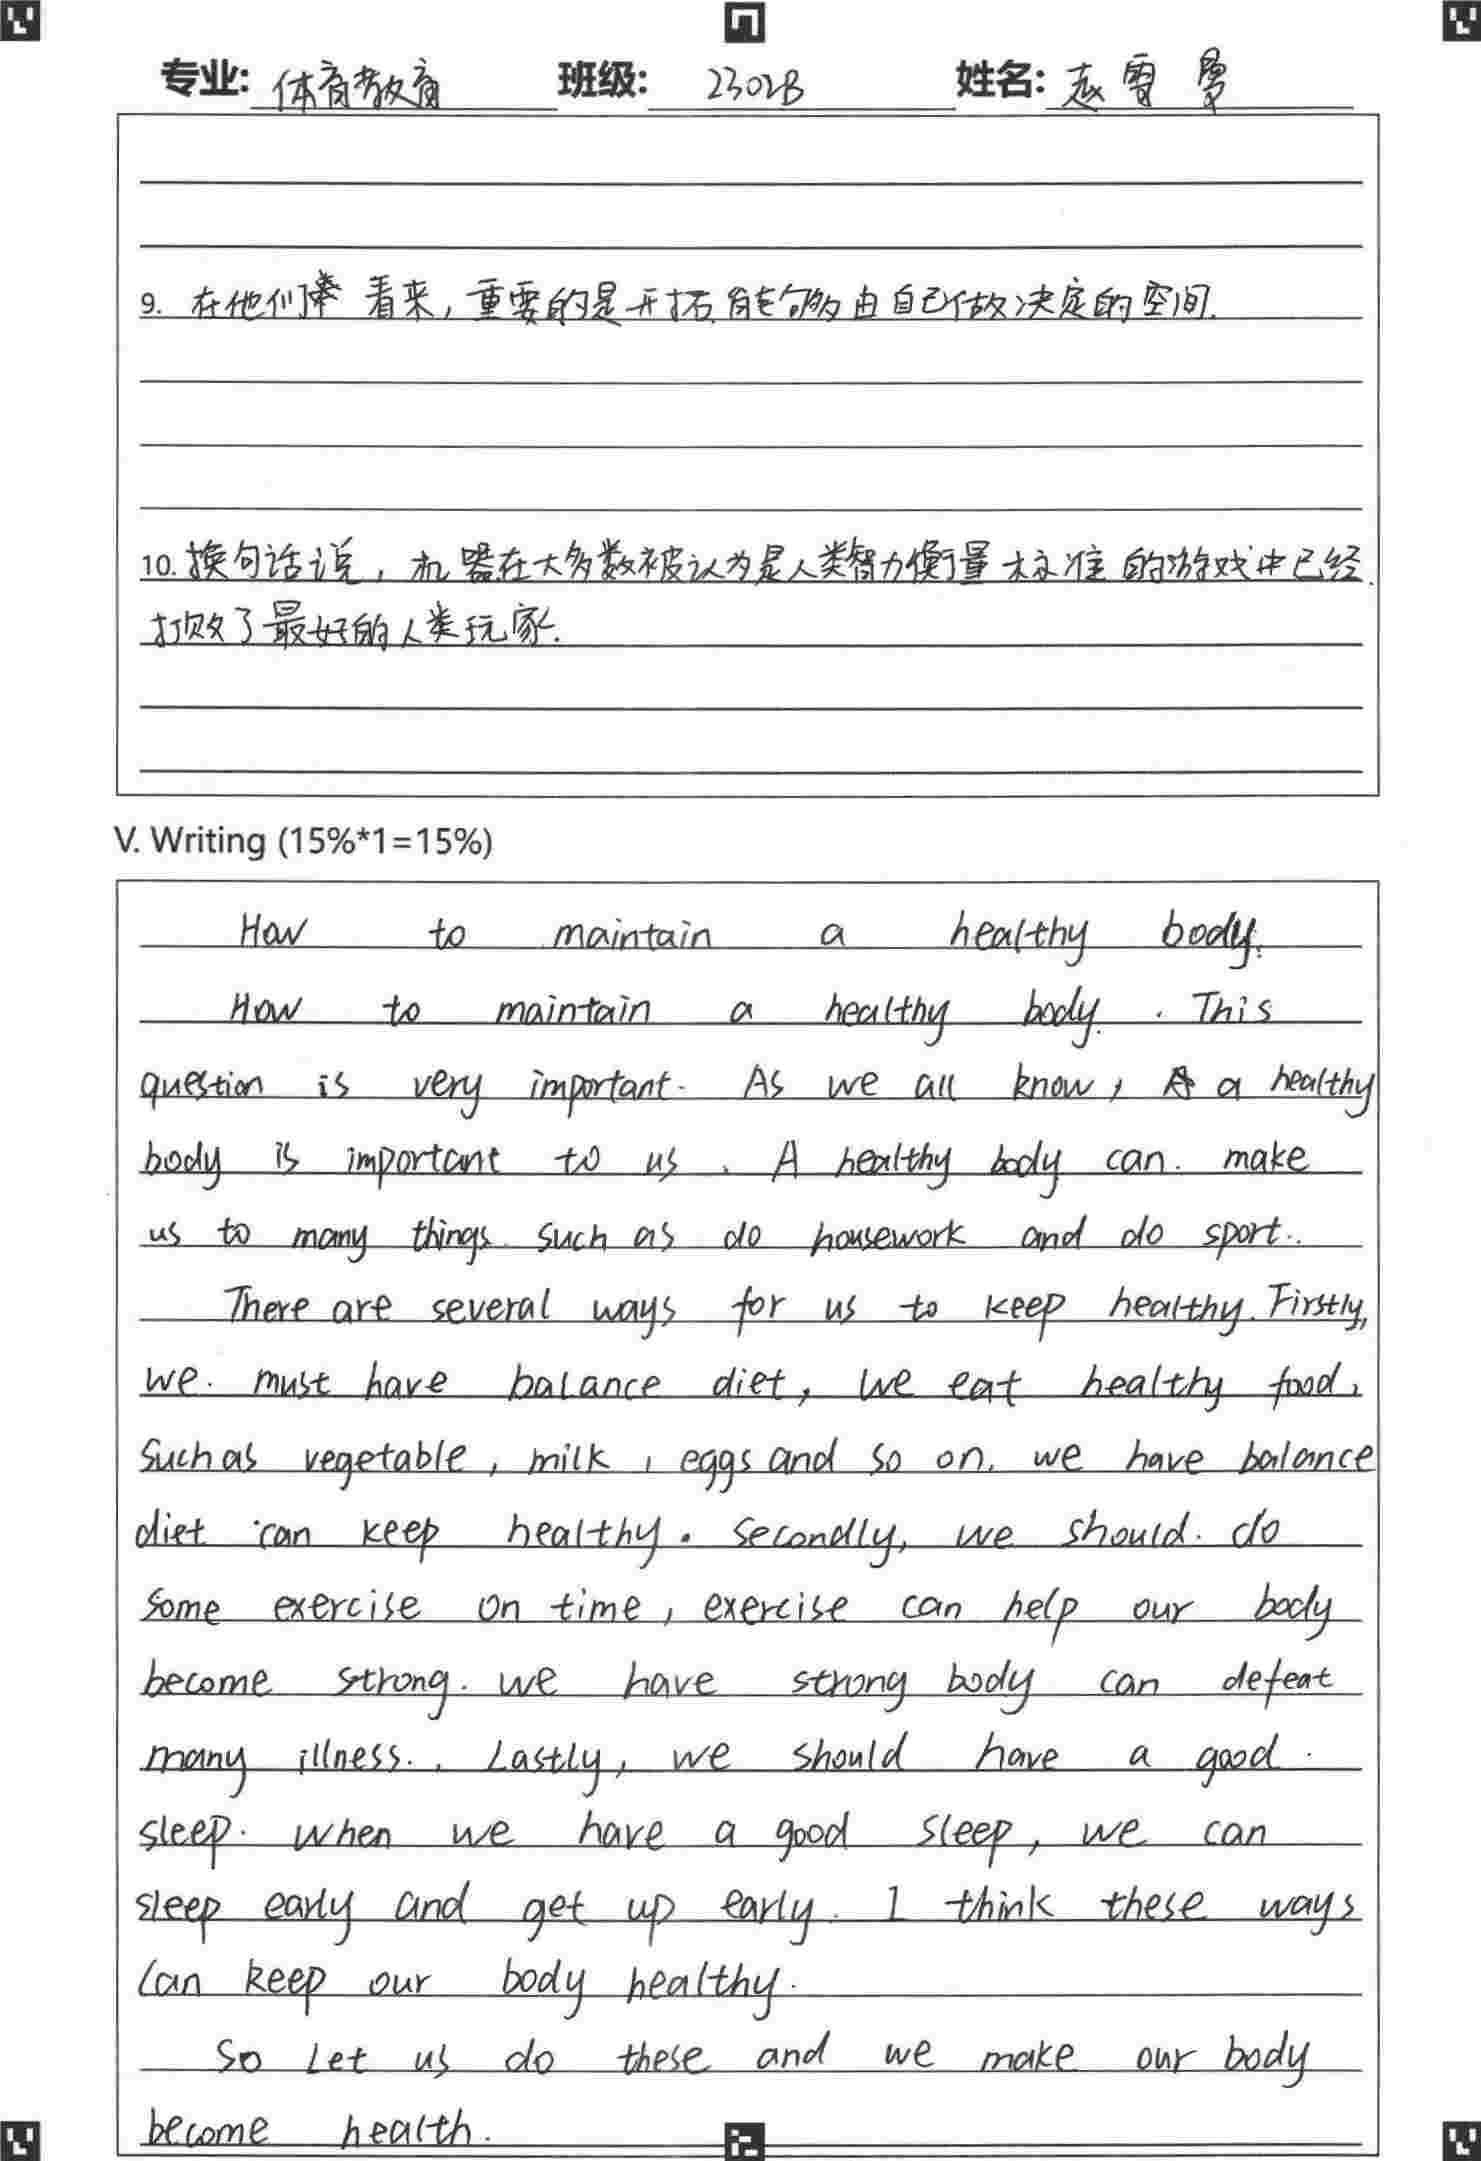 专业: 体育教育 班级: 2302B 姓名: 赵雪曼
9. 在他们看来，重要的是开拓能够由自己做决定的空间.
10. 换句话说，机器在大多数被认为是人类智力衡量标准的游戏中已经
打败了最好的人类玩家.
V. Writing (15%*1=15%)
How to maintain a healthy body.
How to maintain a healthy body. This
question is very important. As we all know, a healthy
body is important to us. A healthy body can make
us to many things such as do housework and do sport.
There are several ways for us to keep healthy. Firstly,
we must have balance diet, we eat healthy food,
such as vegetable, milk, eggs and so on. we have balance
diet can keep healthy. Secondly, we should do
some exercise on time, exercise can help our body
become strong. we have strong body can defeat
many illness. Lastly, we should have a good
sleep. when we have a good sleep, we can
sleep early and get up early. I think these ways
can keep our body healthy.
So Let us do these and we make our body
become health.